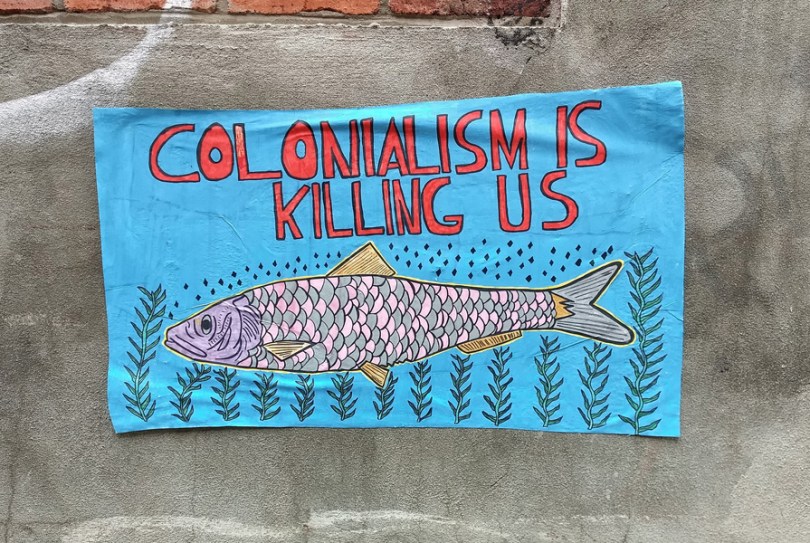 COLONIALISM IS
KILLING US